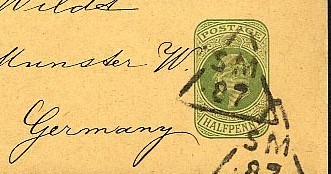 Wilds
Munster W.
Germany
POSTAGE
HALFPENNY
SM
87
SM
87